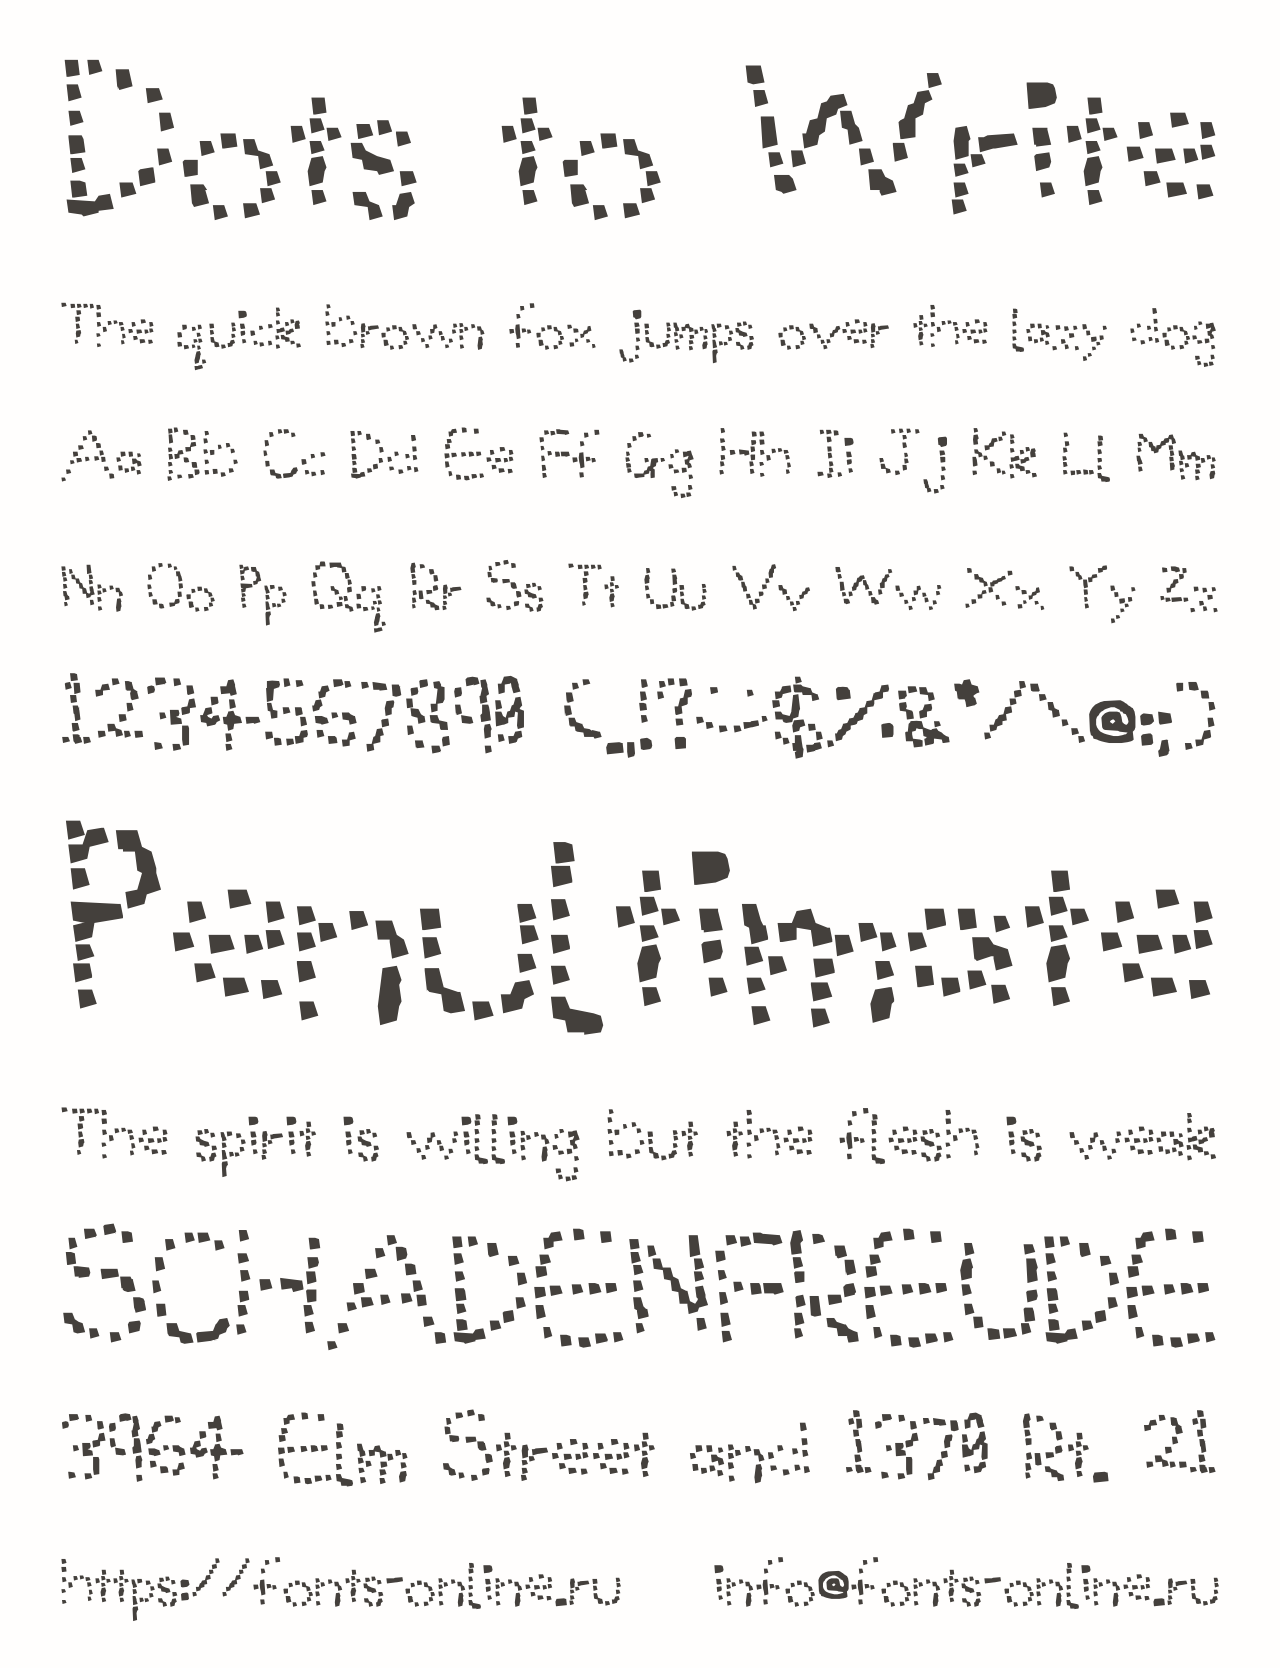 Dots to Write
The quick brown fox jumps over the lazy dog
Aa Bb Cc Dd Ee Ff Gg Hh Ii Jj Kk Ll Mm
Nn Oo Pp Qq Rr Ss Tt Uu Vv Ww Xx Yy Zz
1234567890 (,!.?:-$/%&*/\@;)
Penultimate
The spirit is willing but the flesh is weak
SCHADENFREUDE
3964 Elm Street and 1370 Rt. 21
https://fonts-online.ru info@fonts-online.ru